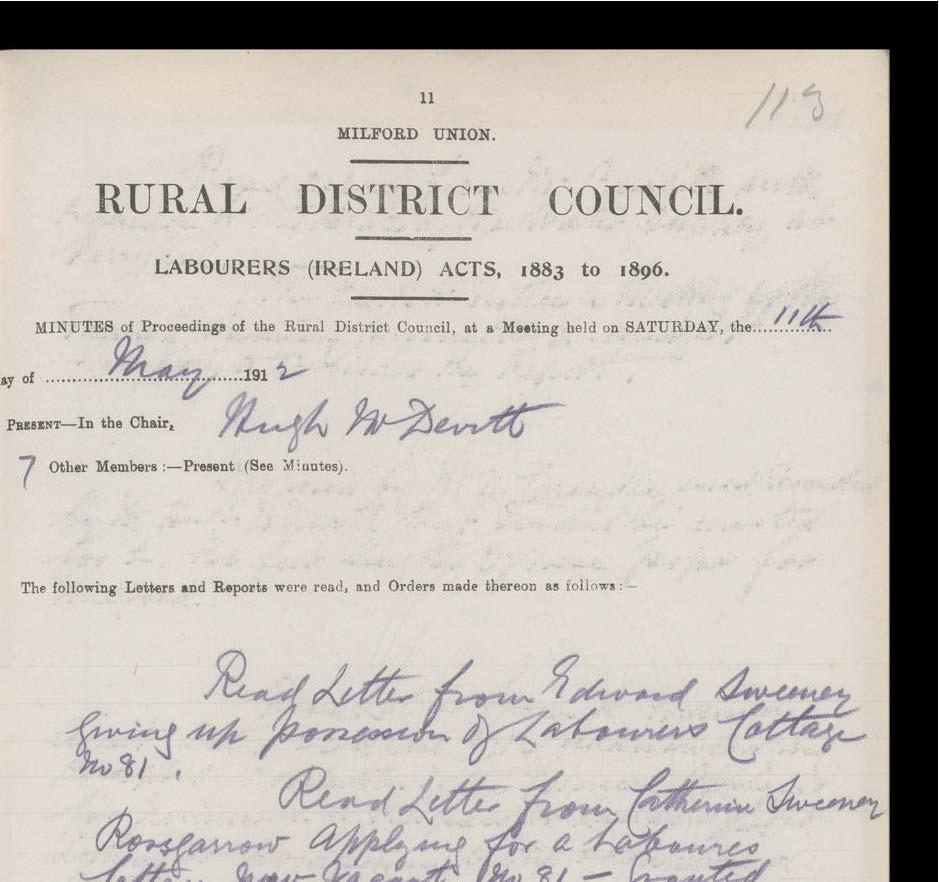 11
113
MILFORD UNION.
RURAL DISTRICT COUNCIL.
LABOURERS (IRELAND) ACTS, 1883 to 1896.
MINUTES of Proceedings of the Rural District Council, at a Meeting held on SATURDAY, the....11th....
ay of ....May....1912
PRESENT—In the Chair, Hugh McDevitt
7 Other Members :—Present (See Minutes).
The following Letters and Reports were read, and Orders made thereon as follows :—
Read Letter from Edward Sweeney
giving up possession of Labourers Cottage
No 81.
Read Letter from Catherine Sweeney
Rossgarrow applying for a Laboures
Cottage now Vacant No 81 — Granted